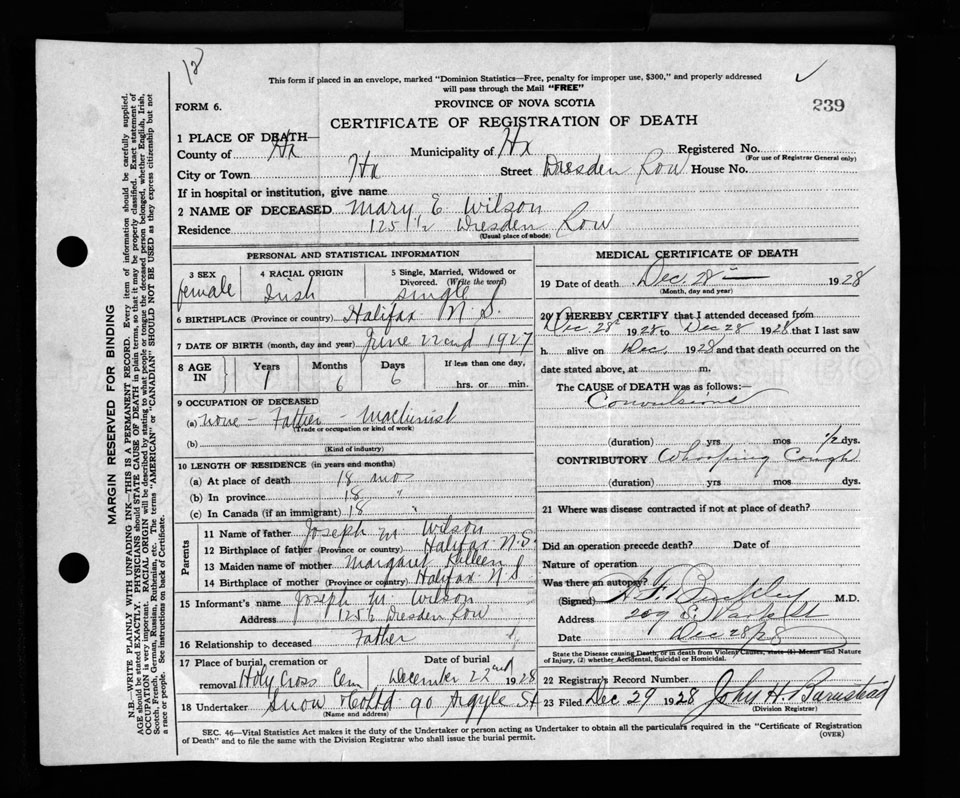 18
This form if placed in an envelope, marked "Dominion Statistics—Free, penalty for improper use, $300," and properly addressed
will pass through the Mail "FREE"
FORM 6.
PROVINCE OF NOVA SCOTIA
239
CERTIFICATE OF REGISTRATION OF DEATH
1 PLACE OF DEATH—
County of Hx Municipality of Hx Registered No.
(For use of Registrar General only)
City or Town Hx Street Dresden Row House No.
If in hospital or institution, give name
2 NAME OF DECEASED Mary E Wilson
Residence 125 1/2 Dresden Row
(Usual place of abode)
PERSONAL AND STATISTICAL INFORMATION
3 SEX female
4 RACIAL ORIGIN Irish
5 Single, Married, Widowed or
Divorced. (Write the word) single
6 BIRTHPLACE (Province or country) Halifax N.S.
7 DATE OF BIRTH (month, day and year) June 22nd 1927
8 AGE IN Years 1 Months 6 Days 6 If less than one day,
hrs. or min.
9 OCCUPATION OF DECEASED
(a) none - Father - Machinist
(Trade or occupation or kind of work)
(b)
(Kind of industry)
10 LENGTH OF RESIDENCE (in years and months)
(a) At place of death 18 mos
(b) In province 18 "
(c) In Canada (if an immigrant) 18 "
Parents
11 Name of father Joseph M Wilson
12 Birthplace of father (Province or country) Halifax N.S.
13 Maiden name of mother Margaret Killeen
14 Birthplace of mother (Province or country) Halifax N S
15 Informant's name Joseph M. Wilson
Address 125 1/2 Dresden Row
16 Relationship to deceased Father
17 Place of burial, cremation or
removal Holy Cross Cem
Date of burial
December 22nd 1928
18 Undertaker Snow & Co Ltd 90 Argyle St
(Name and address)
MEDICAL CERTIFICATE OF DEATH
19 Date of death Dec 28 1928
(Month, day and year)
20 I HEREBY CERTIFY that I attended deceased from
Dec. 28 1928 to Dec 28 1928 that I last saw
h alive on Dec. 1928 and that death occurred on the
date stated above, at m.
The CAUSE of DEATH was as follows:—
Convulsions
(duration) yrs mos 1/2 dys.
CONTRIBUTORY Whooping Cough
(duration) yrs. mos. dys.
21 Where was disease contracted if not at place of death?
Did an operation precede death? Date of
Nature of operation
Was there an autopsy?
(Signed) Buckley M.D.
Address 209 S. Park St
Date Dec 28/28
State the Disease causing Death, or in death from Violent Causes, state (1) Means and Nature
of Injury, (2) whether Accidental, Suicidal or Homicidal.
22 Registrar's Record Number
23 Filed Dec 29 1928 John H. Barnstead
(Division Registrar)
SEC. 46—Vital Statistics Act makes it the duty of the Undertaker or person acting as Undertaker to obtain all the particulars required in the "Certificate of Registration
of Death" and to file the same with the Division Registrar who shall issue the burial permit.
(OVER)
MARGIN RESERVED FOR BINDING
N.B.—WRITE PLAINLY WITH UNFADING INK—THIS IS A PERMANENT RECORD. Every item of information should be carefully supplied.
AGE should be stated EXACTLY. PHYSICIANS should STATE CAUSE OF DEATH in plain terms, so that it may be properly classified. Exact statement of
OCCUPATION is very important. RACIAL ORIGIN will be described by stating to what people or tongue the deceased person belonged, whether English, Irish,
Scotch, French, German, Russian, Ruthenian, etc. The terms "AMERICAN" or "CANADIAN" SHOULD NOT BE USED as they express citizenship but not
a race or people. See instructions on back of Certificate.